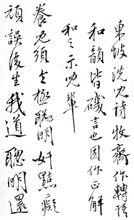 東坡洗兒詩牧齋作轉語
和韻皆譏言也因作正解
和之示兒輩
養兒須生極聰明奸黠癡
頑誤後生我道聰明還